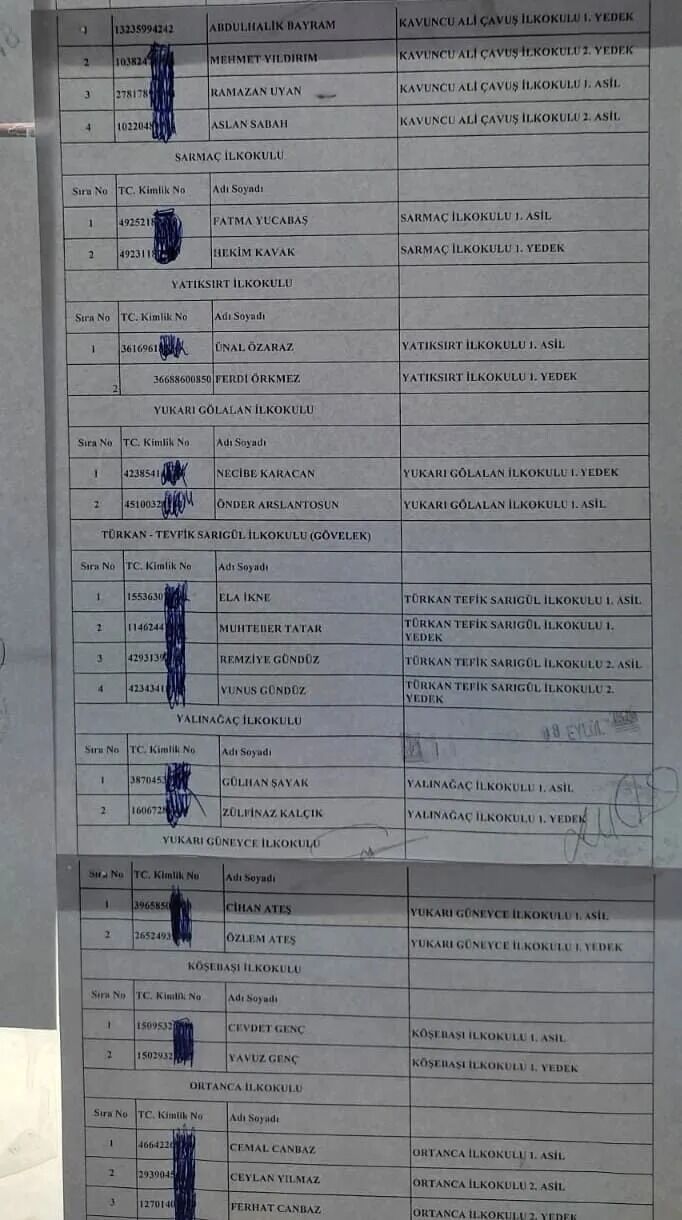 1 13235994242 ABDULHALİK BAYRAM KAVUNCU ALİ ÇAVUŞ İLKOKULU 1. YEDEK
2 103824 MEHMET YILDIRIM KAVUNCU ALİ ÇAVUŞ İLKOKULU 2. YEDEK
3 278178 RAMAZAN UYAN KAVUNCU ALİ ÇAVUŞ İLKOKULU 1. ASİL
4 102204 ASLAN SABAH KAVUNCU ALİ ÇAVUŞ İLKOKULU 2. ASİL
SARMAÇ İLKOKULU
Sıra No TC. Kimlik No Adı Soyadı
1 492521 FATMA YUCABAŞ SARMAÇ İLKOKULU 1. ASİL
2 492311 HEKİM KAVAK SARMAÇ İLKOKULU 1. YEDEK
YATIKSIRT İLKOKULU
Sıra No TC. Kimlik No Adı Soyadı
1 3616961 ÜNAL ÖZARAZ YATIKSIRT İLKOKULU 1. ASİL
2 36688600850 FERDİ ÖRKMEZ YATIKSIRT İLKOKULU 1. YEDEK
YUKARI GÖLALAN İLKOKULU
Sıra No TC. Kimlik No Adı Soyadı
1 4238541 NECİBE KARACAN YUKARI GÖLALAN İLKOKULU 1. YEDEK
2 4510032 ÖNDER ARSLANTOSUN YUKARI GÖLALAN İLKOKULU 1. ASİL
TÜRKAN - TEVFİK SARIGÜL İLKOKULU (GÖVELEK)
Sıra No TC. Kimlik No Adı Soyadı
1 1553630 ELA İKNE TÜRKAN TEFİK SARIGÜL İLKOKULU 1. ASİL
2 1146244 MUHTEBER TATAR TÜRKAN TEFİK SARIGÜL İLKOKULU 1. YEDEK
3 429313 REMZİYE GÜNDÜZ TÜRKAN TEFİK SARIGÜL İLKOKULU 2. ASİL
4 4234341 YUNUS GÜNDÜZ TÜRKAN TEFİK SARIGÜL İLKOKULU 2. YEDEK
YALINAĞAÇ İLKOKULU
EYLÜL
Sıra No TC. Kimlik No Adı Soyadı
1 387045 GÜLHAN ŞAYAK YALINAĞAÇ İLKOKULU 1. ASİL
2 160672 ZÜLFİNAZ KALÇIK YALINAĞAÇ İLKOKULU 1. YEDEK
YUKARI GÜNEYCE İLKOKULU
Sıra No TC. Kimlik No Adı Soyadı
1 396585 CİHAN ATEŞ YUKARI GÜNEYCE İLKOKULU 1. ASİL
2 265249 ÖZLEM ATEŞ YUKARI GÜNEYCE İLKOKULU 1. YEDEK
KÖŞEBAŞI İLKOKULU
Sıra No TC. Kimlik No Adı Soyadı
1 1509532 CEVDET GENÇ KÖŞEBAŞI İLKOKULU 1. ASİL
2 1502932 YAVUZ GENÇ KÖŞEBAŞI İLKOKULU 1. YEDEK
ORTANCA İLKOKULU
Sıra No TC. Kimlik No Adı Soyadı
1 466422 CEMAL CANBAZ ORTANCA İLKOKULU 1. ASİL
2 293904 CEYLAN YILMAZ ORTANCA İLKOKULU 2. ASİL
3 127014 FERHAT CANBAZ ORTANCA İLKOKULU 2. YEDEK